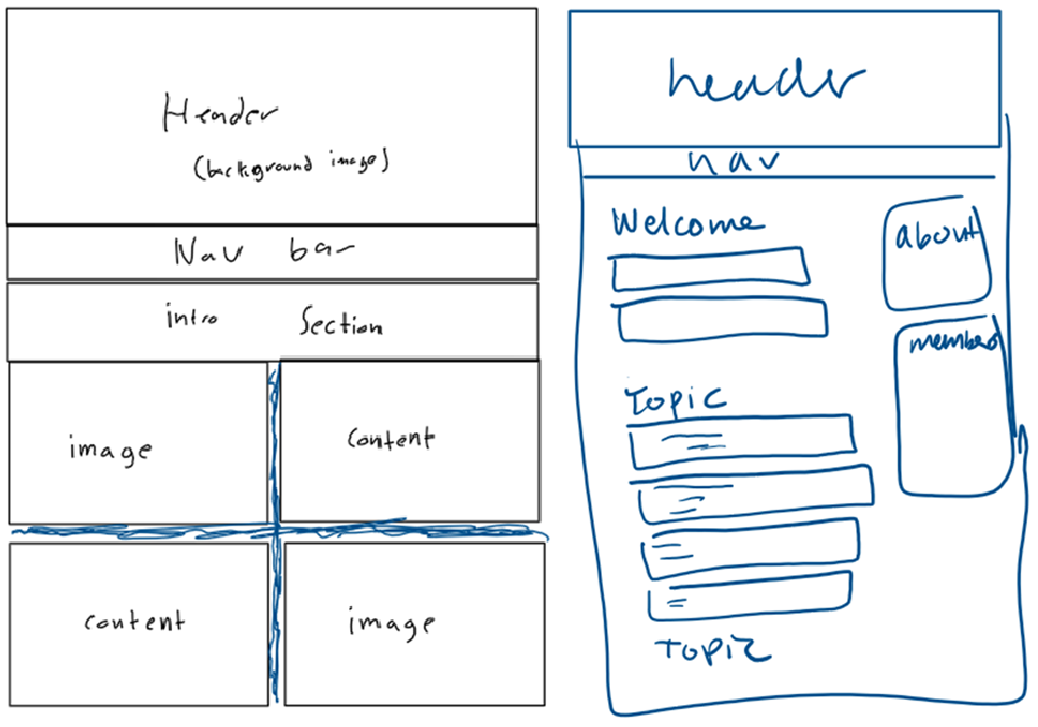 Header
(background image)
Nav bar
intro Section
image content
content image
header
nav
Welcome
about
members
Topic
Topic